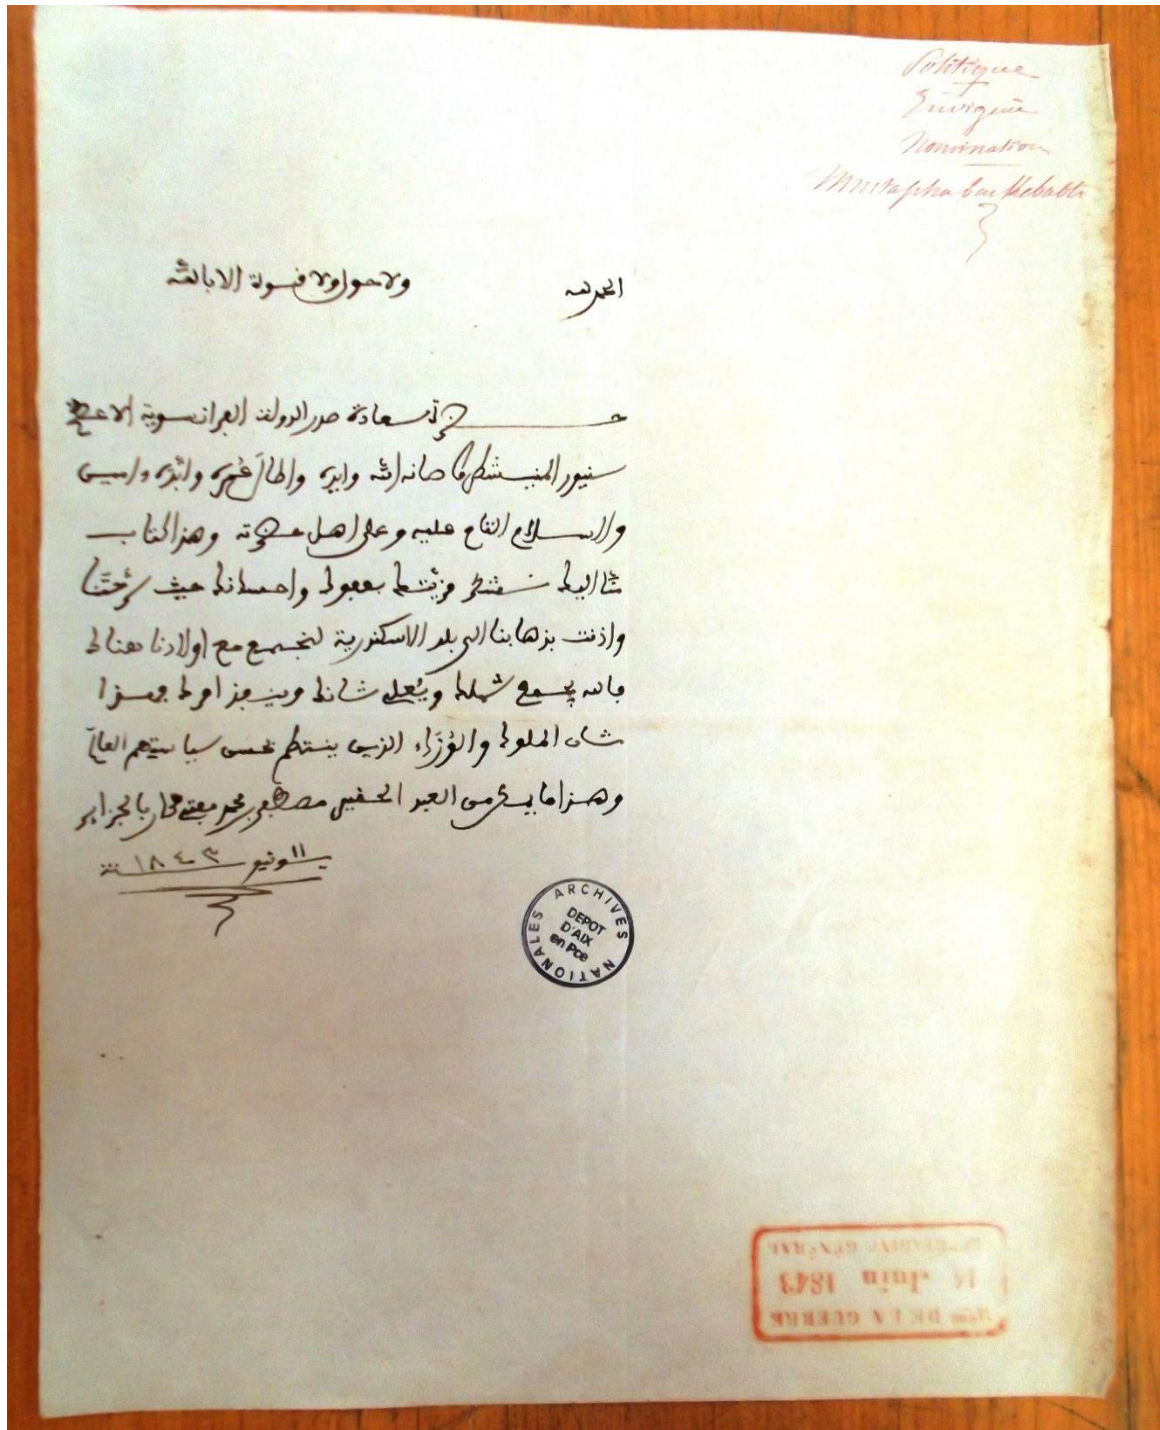 Politique
Nomination
Mustapha ben Kebabti
الحمد لله ولا حول ولا قوة الا بالله
حضرة سعادة صدر الدولة الفرانسوية الاعظم
سنيور المنيستر صانه الله وايده واطال عمره وابده وامين
والسلام التام عليه وعلى اهل حضرته وهذا الكتاب
منا اليك نستكثر بعفوك واحسانك حيث سرحتنا
واذنت بذهابنا الى بلد الاسكندرية لنجتمع مع اولادنا هناك
فالله يجمع شملك ويعلي شانك وينفذ امرك فهذا
شان الملوك والوزراء الذين ينتظم بحسن سياستهم العالم
وهذا ما من العبد الحقير مصطفى بن محمد مفتي بالجزاير
١١ يونيو سنة ١٨٤٣
ARCHIVES NATIONALES
DEPOT
D'AIX
en Pce
DE LA GUERRE
14 Juin 1843
GÉNÉRAL